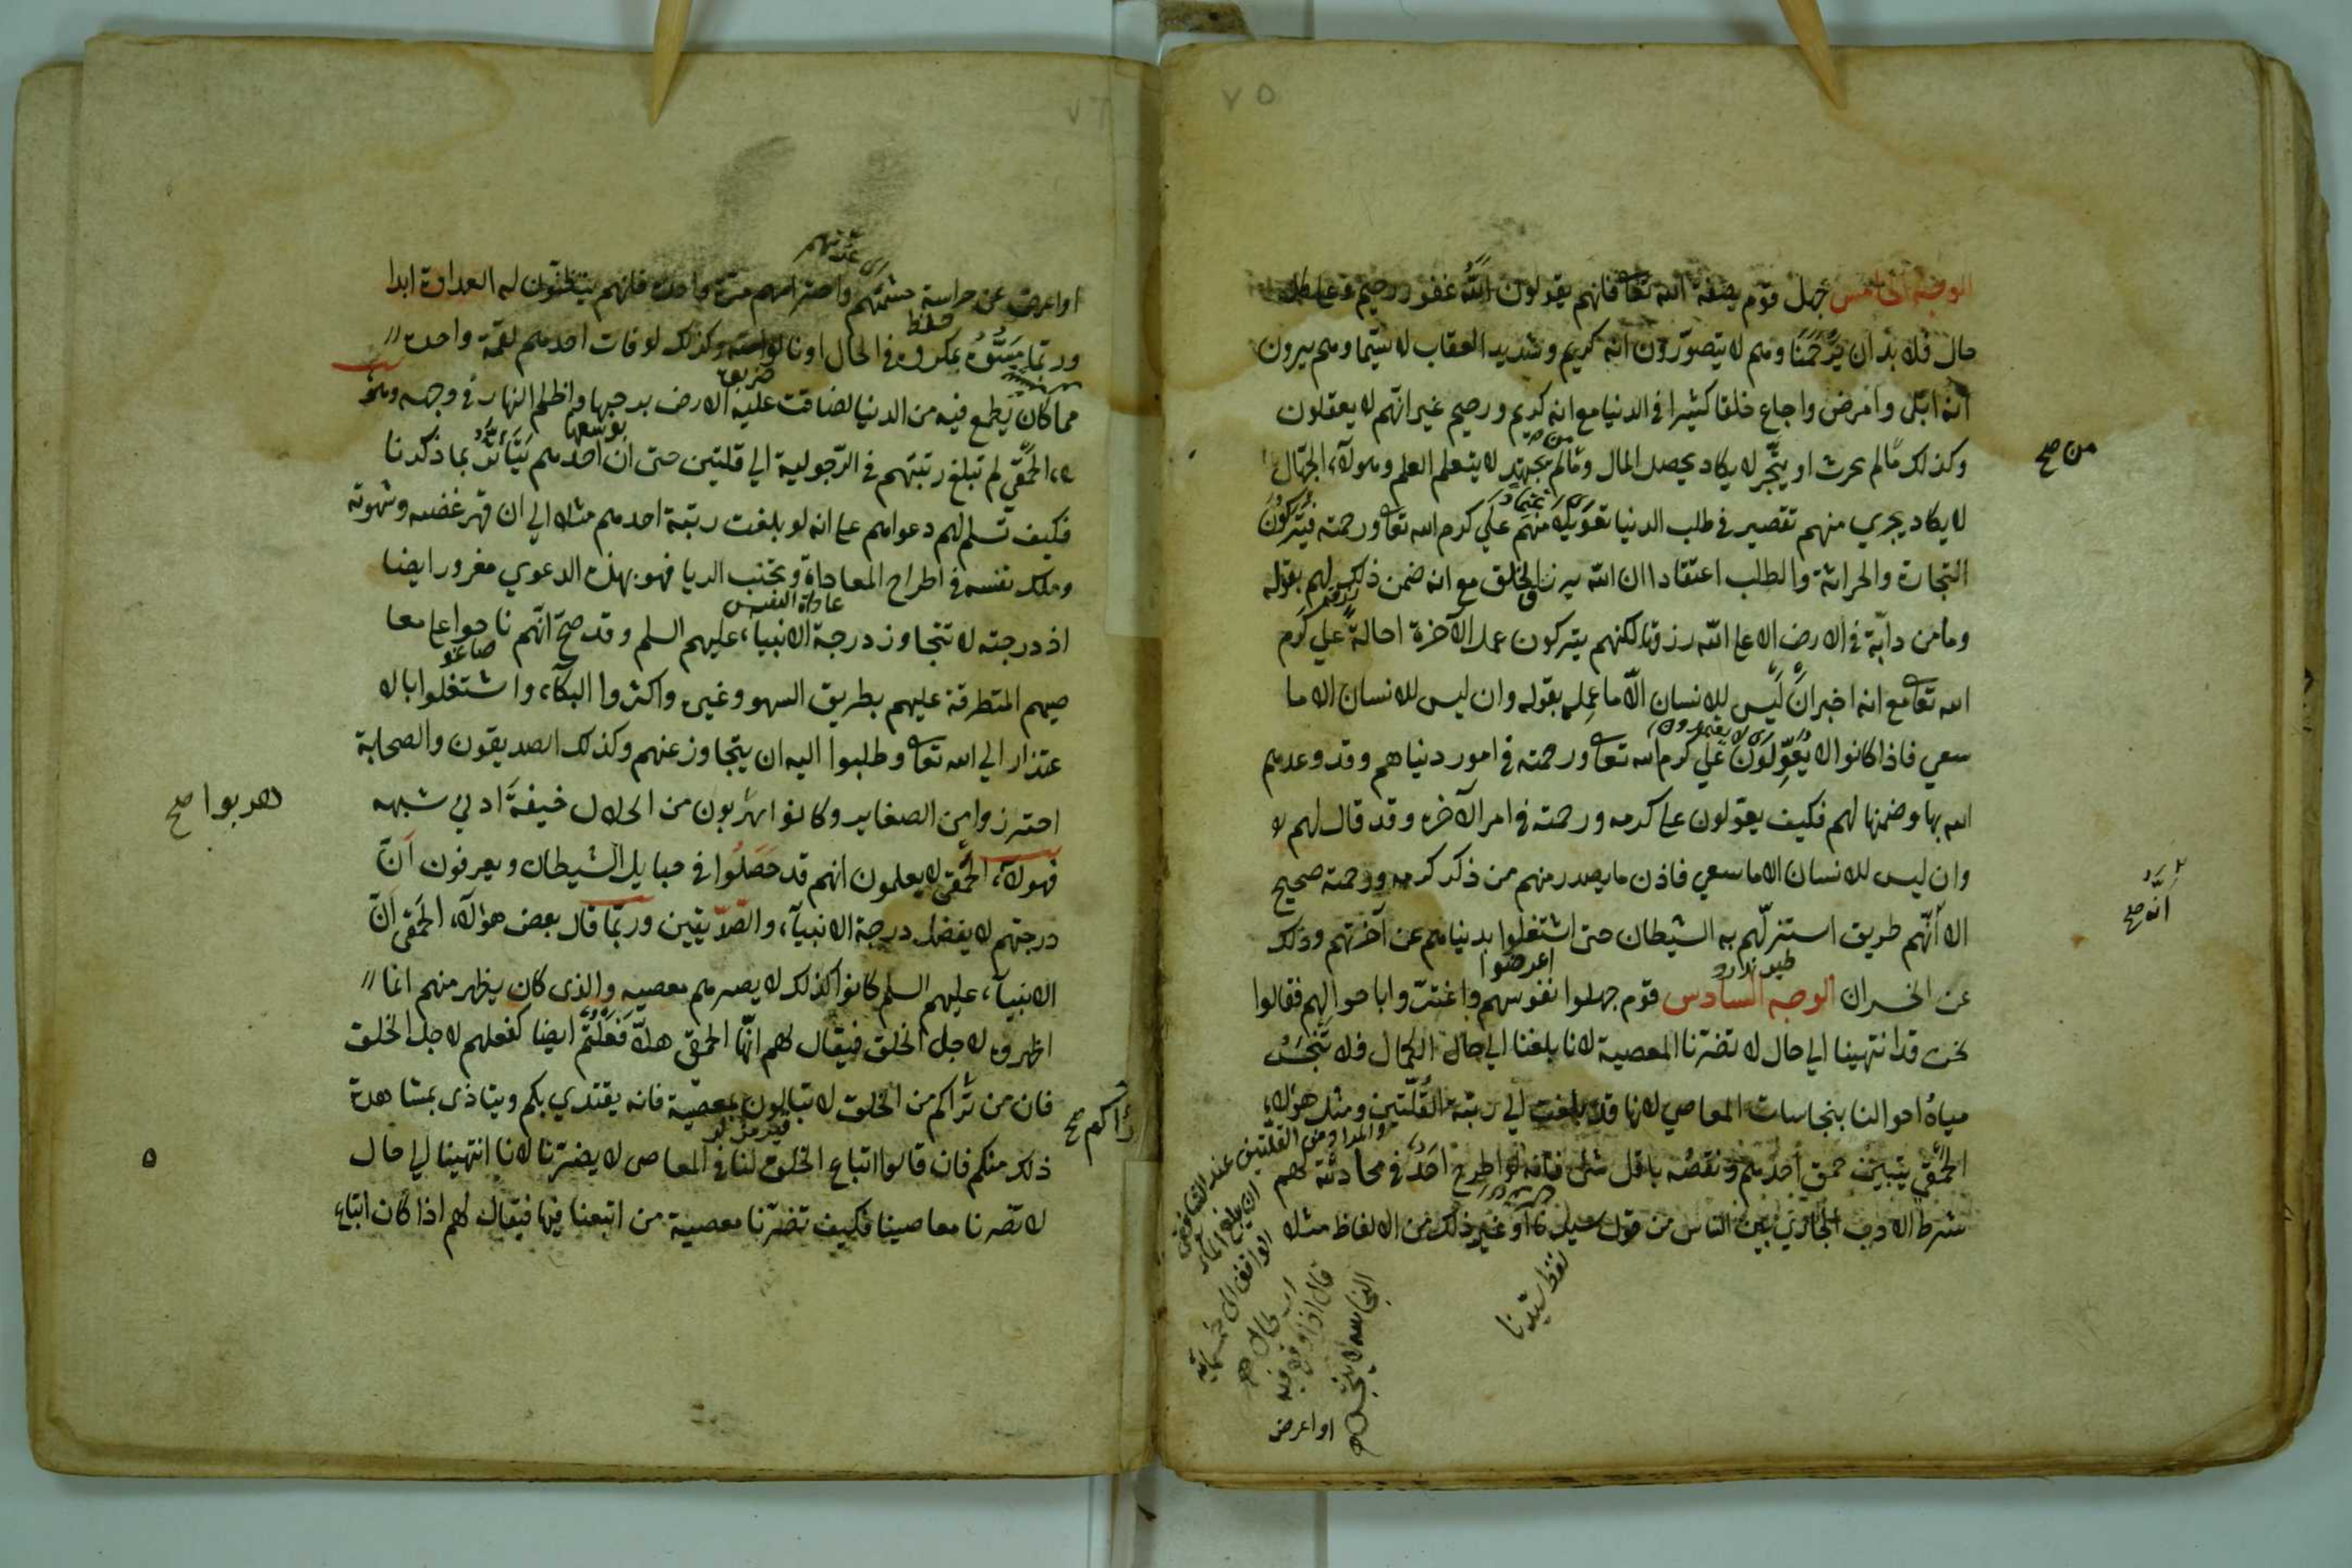 ٧٥
الوجه الخامس جهل قوم بصفة الله تعا فانهم يقولون الله غفور رحيم وعلى كل
حال فلا بد ان يرحمنا وهم لا يتصورون انه كريم وشديد العقاب لا سيما وهم يرون
انه ابتلى وامرض واجاع خلقا كثيرا في الدنيا مع انه كريم ورحيم غير انهم لا يعقلون
وكذلك مالم يحرث او يتجر لا يكاد يحصل المال ومالم يجتهد لا يتعلم العلم وهولآء الجهال
من صح
لا يكاد يجري منهم تقصير في طلب الدنيا تعويلا منهم علي كرم الله تعا ورحمته فيتركون
اعتمادا
التجارة والحراثة والطلب اعتقادا ان الله يرزق الخلق مع انه ضمن ذلك لهم بقوله
وما من دابة في الارض الا على الله رزقها لكنهم يتركون عمل الآخرة احالة علي كرم
الله تعا مع انه اخبر ان ليس للانسان الا ما عمله بقوله وان ليس للانسان الا ما
اى لا يعتمدون
سعي فاذا كانوا لا يعولون علي كرم الله تعا ورحمته في امور دنياهم وقد وعدهم
الله بها وضمنها لهم فكيف يعولون على كرمه ورحمته في امر الآخره وقد قال لهم
وان ليس للانسان الا ما سعي فاذن ما يصدر منهم من ذكر كرمه ورحمته صحيح
الا انهم طريق استنزلهم به الشيطان حتى اشتغلوا بدنياهم عن آخرتهم وذلك
انه صح
اعرضوا
عن الخسران الوجه السادس قوم جهلوا نفوسهم واغتت واباحوالهم فقالوا
نحن قد انتهينا الي حال لا تضرنا المعصية لانا بلغنا الي حال الكمال فلا تنجس
مياه احوالنا بنجاسات المعاصي لانها قد بلغت الي رتبة القلتين ومثل هؤلاء
الحمقي يتبين حمق احدهم ونقصه باقل شئ فانه لو اطرح احد في محادثته لهم
شرط الادب الجاري بين الناس من قول سيدنا او غير ذلك من الالفاظ مثله
لفظ سيدنا
والمراد من القلتين عند الشافعى
ان يبلغ الماء
قال اذا وقع فيه
النجاسة لا يتنجس
او اعرض
او اعرض عن حراسة حشمتهم واحترامهم مرة واحدة فانهم يتطنون له العداوة ابدا
حفظ
وربما يسؤه بمكروه في الحال او نالوا منه وكذلك لو فات احدهم لقمة واحدة
مما كان يطمع فيه من الدنيا لضاقت عليه الارض برحبها واظلم النهار في وجهه ومثل
بوسعها
ه‍ء الحمقى لم تبلغ رتبتهم في الرجولية الي قلتين حتى ان احدهم يتأثر بما ذكرنا
فكيف تسلم لهم دعواهم على انه لو بلغت رتبة احدهم مثلا الي ان قهر غضبه وشهوته
وملك نفسه في اطراح المعاداة وتجنب الريا فهو بهذه الدعوي مغرور ايضا
عاداة النفس
اذ درجته لا تتجاوز درجة الانبياء عليهم السلم وقد صح انهم ناحوا على معا
صيهم المتطرقة عليهم بطريق السهو وغيره واكثروا البكآء واشتغلوا بالا
عتذار الي الله تعا وطلبوا اليه ان يتجاوز عنهم وكذلك الصديقون والصحابة
احترزوا من الصغاير وكانوا يهربون من الحلال خيفة ادني شبهه
هربوا صح
فهولآء الحمقى لا يعلمون انهم قد حصلوا في حبايل الشيطان ويعرفون ان
درجتهم لا يفضل درجة الانبيآء والصديقين وربما قال بعض هؤلآء الحمقى ان
الانبيآء عليهم السلم كانوا كذلك لا يضرهم معصيه والذى كان يظهر منهم انما
اظهروه لاجل الخلق فيقال لهم ايها الحمقى هلا فعلتم ايضا كفعلهم لاجل الخلق
فان من تراكم من الخلق لا تبالون بمعصية فانه يقتدي بكم ويتاذى بمشاهدة
رأكم صح
ذلك منكم فان قالوا اتباع الخلق لنا في المعاصى لا يضرنا لانا انتهينا الي حال
لا تضرنا معاصينا فكيف تضرنا معصية من اتبعنا فيها فيقال لهم اذا كان اتباع